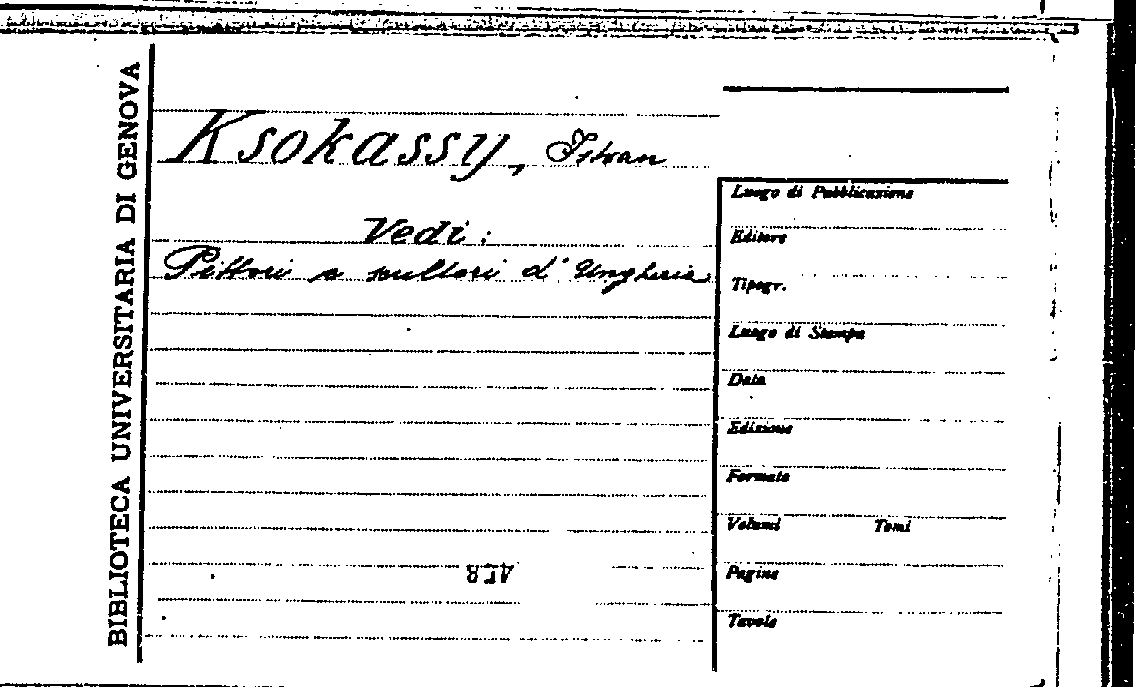 BIBLIOTECA UNIVERSITARIA DI GENOVA
Ksokassy, Istvan
Vedi:
Pittori e scultori d'Ungheria
Luogo di Pubblicazione
Editore
Tipogr.
Luogo di Stampa
Data
Edizione
Formato
Volumi Tomi
Pagine
Tavole